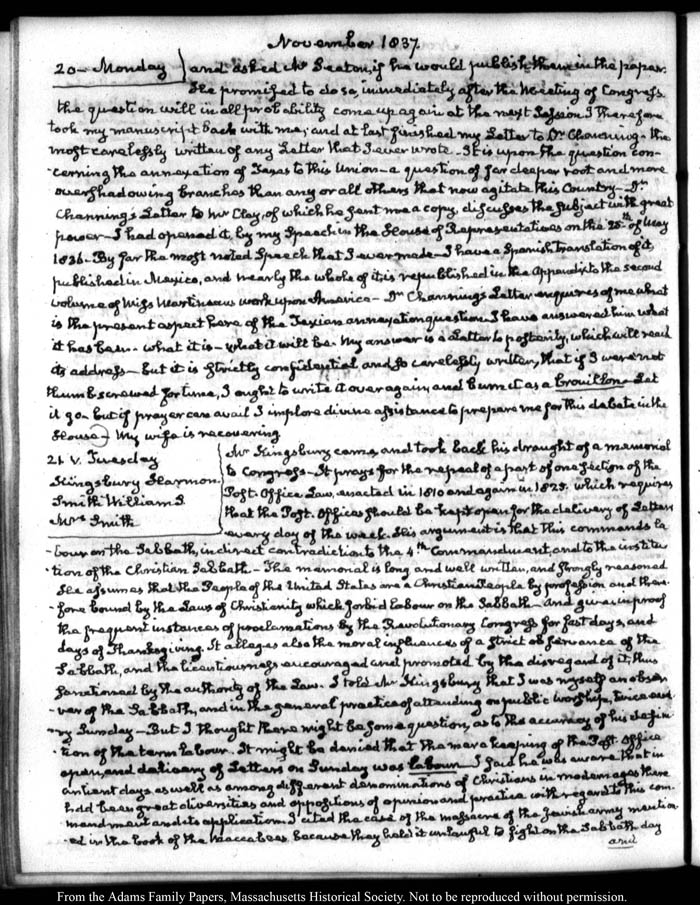 November 1837.
20 – Monday } and asked Mr Seaton, if he would publish them in the paper.
He promised to do so, immediately after the Meeting of Congress.
the question will in all probability come up again at the next Session. I therefore
took my manuscript back with me; and at last finished my Letter to Dr Channing – the
most carelessly written of any Letter that I ever wrote. It is upon the question con-
-cerning the annexation of Texas to this Union – a question of far deeper root and more
overshadowing branches than any or all others that now agitate this Country – Dr
Channing's Letter to Mr Clay, of which he sent me a copy, discusses the subject with great
power – I had opened it, by my Speech in the House of Representatives on the 25th of May
1836 – By far the most noted Speech that I ever made – I have a Spanish translation of it,
published in Mexico, and nearly the whole of it is republished in the Appendix to the second
volume of Miss Martineau's work upon America – Dr Channing's Letter enquires of me what
is the present aspect here of the Texian annexation question. I have answered him what
it has been – what it is – what it will be. My answer is a Letter to posterity, which will reach
its address – but it is strictly confidential, and so carelessly written, that if I were not
thumbscrewed for time, I ought to write it over again, and burn it as a brouillon – Let
it go – but if prayer can avail I implore divine assistance to prepare me for this debate in the
House – My wife is recovering.
21. V. Tuesday
Kingsbury Harmon
Smith William S.
Mrs Smith
Mr Kingsbury came, and took back his draught of a memorial
to Congress – It prays for the repeal of a part of one section of the
Post-Office Law, enacted in 1810 and again in 1825. which requires
that the Post-Offices should be kept open for the delivery of Letters
every day of the week. His argument is that this commands la
-bour on the Sabbath, in direct contradiction to the 4th Commandment, and to the institu-
-tion of the Christian Sabbath – The memorial is long and well written, and strongly reasoned
He assumes that the People of the United States are a Christian People by profession and there-
-fore bound by the Laws of Christianity which forbid labour on the Sabbath – and gives in proof
the frequent instances of proclamations by the Revolutionary Congress for fast days, and
days of Thanksgiving. It alleges also the moral influences of a strict observance of the
Sabbath, and the licentiousness encouraged and promoted by the disregard of it, thus
sanctioned by the authority of the Law. I told Mr Kingsbury that I was myself an obser
-ver of the Sabbath, and in the general practice of attending on public worship, twice eve
-ry Sunday – But I thought there might be some question, as to the accuracy of his defini
-tion of the term labour. It might be denied that the mere keeping of the Post Office
open, and delivery of Letters on Sunday was labour. I said he was aware that in
antient days as well as among different denominations of Christians in modern ages there
had been great diversities and oppositions of opinion and practice with regard to this com-
mandment and its application. I cited the case of the massacre of the Jewish army mention
-ed in the book of the Maccabees because they held it unlawful to fight on the Sabbath day
and
From the Adams Family Papers, Massachusetts Historical Society. Not to be reproduced without permission.